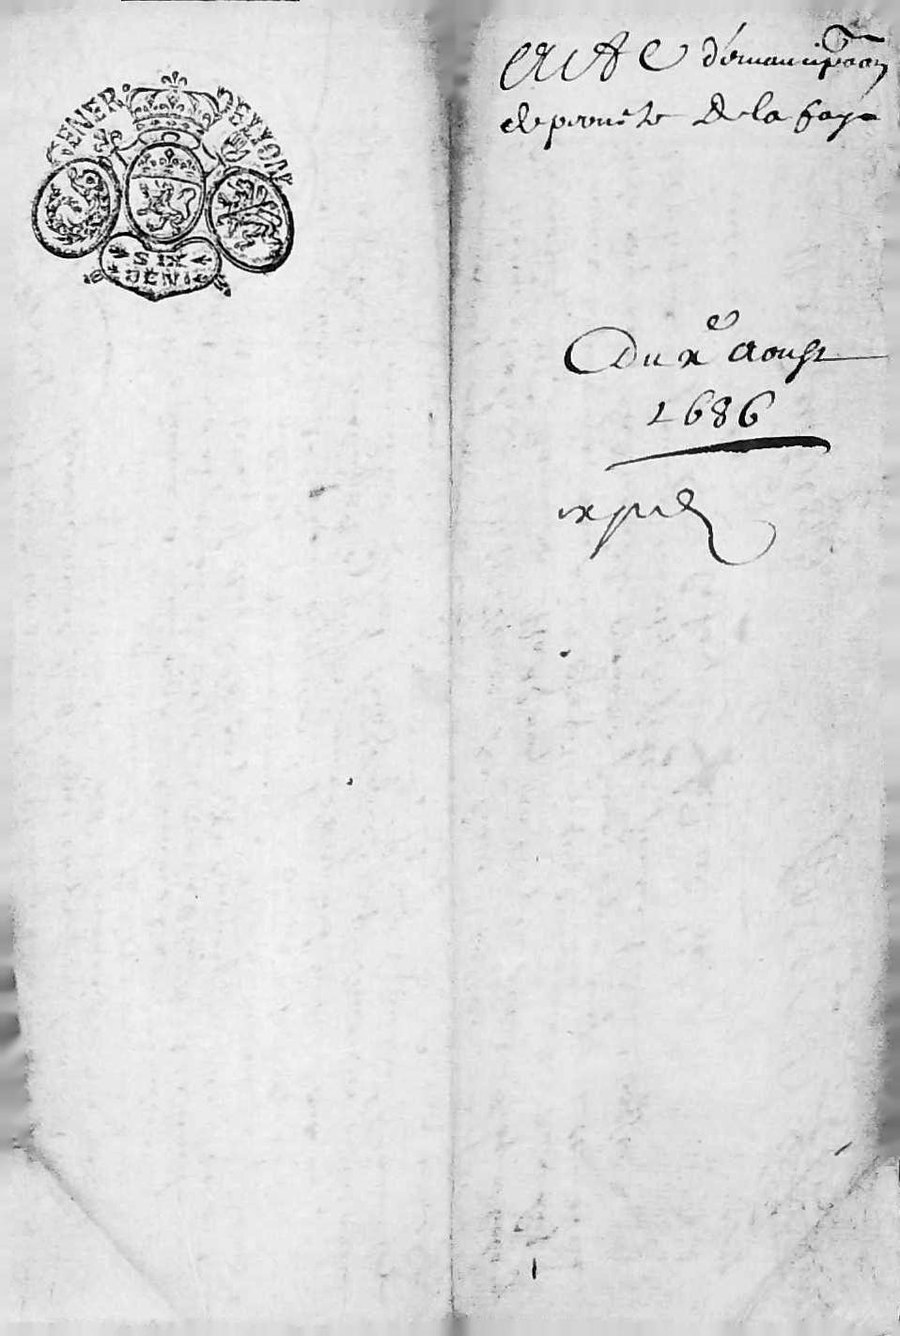 GENER. DE LYON
SIX
DENI
Acte d'émancipaon
de pierre de la faye
Du xe Aoust
1686
expedié